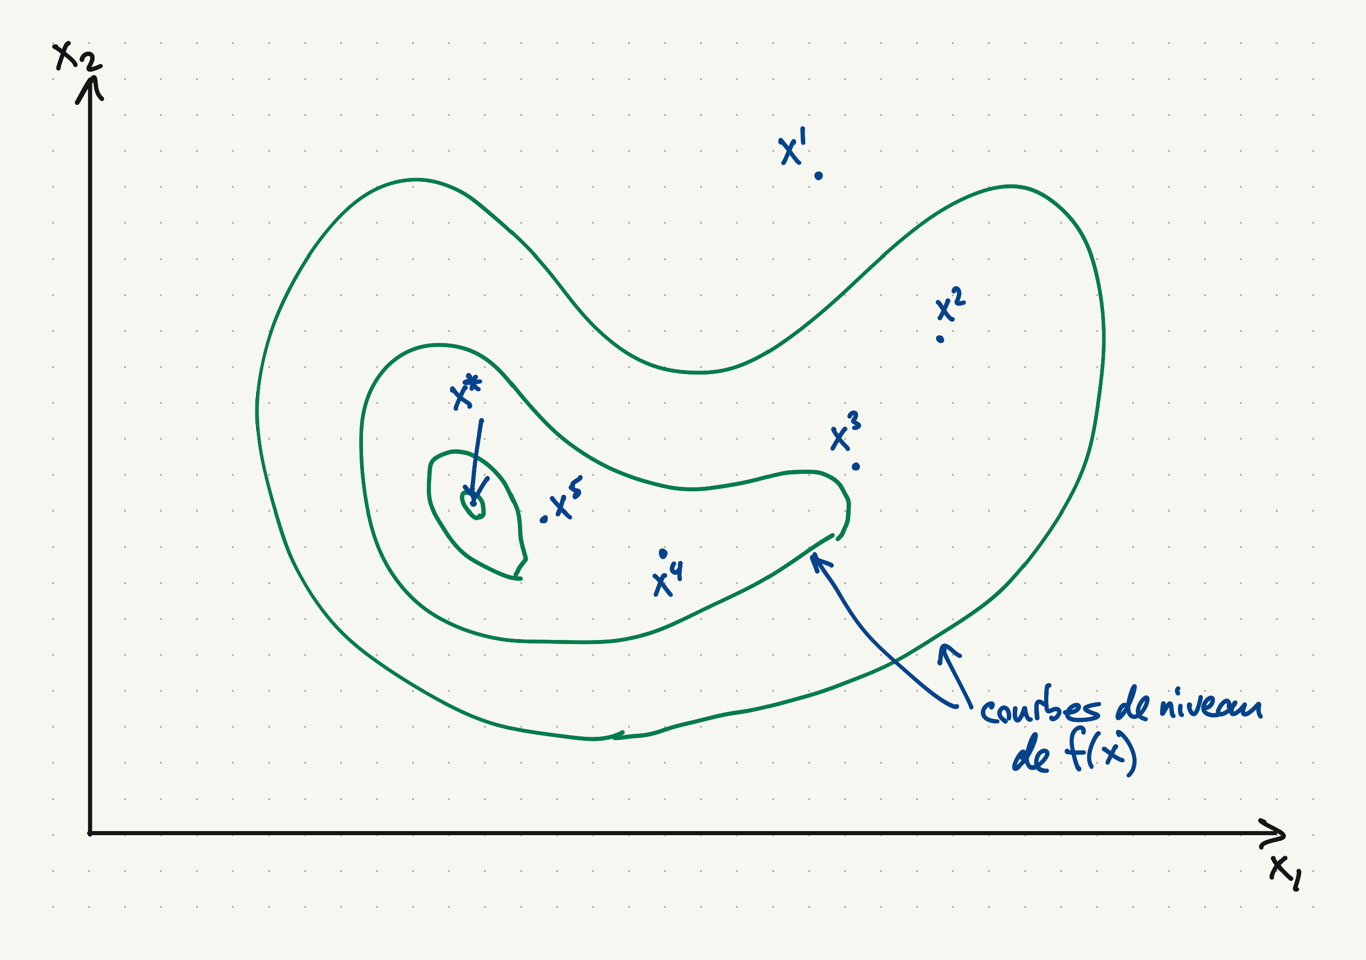 x₂
x¹
x²
x*
x³
x⁵
x⁴
courbes de niveau
de f(x)
x₁